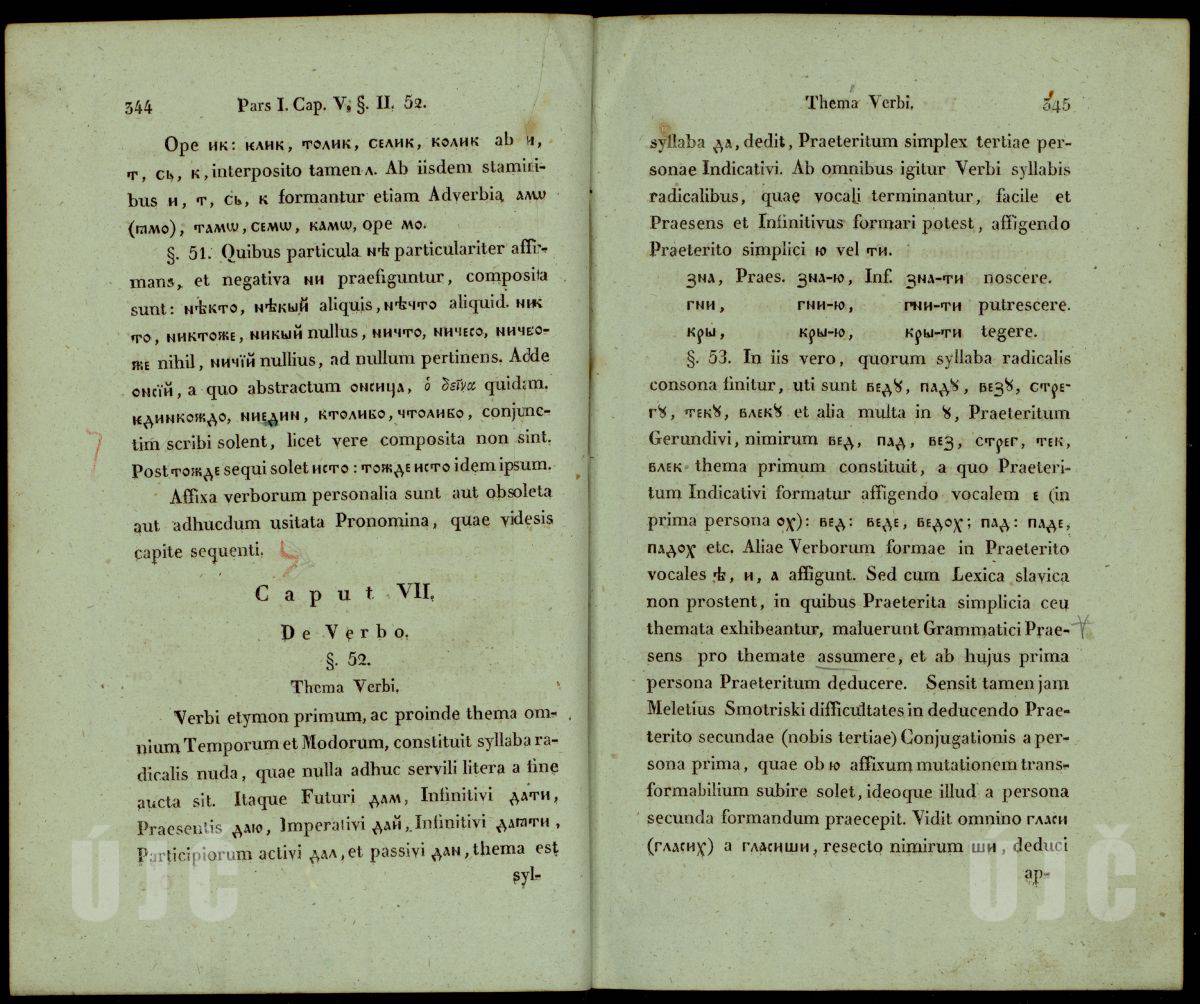 344 Pars I. Cap. V. §. II. 52.
Ope ик: ѥлик, толик, селик, колик ab и,
т, сь, к, interposito tamen л. Ab iisdem stamini-
bus и, т, сь, к formantur etiam Adverbia амѡ
(ꙗмо), тамѡ, семѡ, камѡ, ope мо.
§. 51. Quibus particula нѣ particulariter affir-
mans, et negativa ни praefiguntur, composita
sunt: нѣкто, нѣкый aliquis, нѣчто aliquid. ник
то, никтоже, никый nullus, ничто, ничесо, ничесо-
же nihil, ничїй nullius, ad nullum pertinens. Adde
онсїй, a quo abstractum онсица, ὁ δεῖνα quidam.
ѥдинкождо, ниедин, ктолибо, чтолибо, conjunc-
tim scribi solent, licet vere composita non sint.
Post тожде sequi solet исто: тожде исто idem ipsum.
Affixa verborum personalia sunt aut obsoleta
aut adhucdum usitata Pronomina, quae videsis
capite sequenti.
Caput VII.
De Verbo.
§. 52.
Thema Verbi.
Verbi etymon primum, ac proinde thema om-
nium Temporum et Modorum, constituit syllaba ra-
dicalis nuda, quae nulla adhuc servili litera a fine
aucta sit. Itaque Futuri дам, Infinitivi дати,
Praesentis даю, Imperativi дай, Infinitivi даꙗти,
Participiorum activi дал, et passivi дан, thema est
syl-
Thema Verbi. 345
syllaba да, dedit, Praeteritum simplex tertiae per-
sonae Indicativi. Ab omnibus igitur Verbi syllabis
radicalibus, quae vocali terminantur, facile et
Praesens et Infinitivus formari potest, affigendo
Praeterito simplici ю vel ти.
зна, Praes. зна-ю, Inf. зна-ти noscere.
гни, гни-ю, гни-ти putrescere.
кры, кры-ю, кры-ти tegere.
§. 53. In iis vero, quorum syllaba radicalis
consona finitur, uti sunt ведꙋ, падꙋ, везꙋ, стре-
гꙋ, текꙋ, влекꙋ et alia multa in ꙋ, Praeteritum
Gerundivi, nimirum вед, пад, вез, стрег, тек,
влек thema primum constituit, a quo Praeteri-
tum Indicativi formatur affigendo vocalem е (in
prima persona ох): вед: веде, ведох; пад: паде,
падох etc. Aliae Verborum formae in Praeterito
vocales ѣ, и, а affigunt. Sed cum Lexica slavica
non prostent, in quibus Praeterita simplicia ceu
themata exhibeantur, maluerunt Grammatici Prae-
sens pro themate assumere, et ab hujus prima
persona Praeteritum deducere. Sensit tamen jam
Meletius Smotriski difficultates in deducendo Prae-
terito secundae (nobis tertiae) Conjugationis a per-
sona prima, quae ob ю affixum mutationem trans-
formabilium subire solet, ideoque illud a persona
secunda formandum praecepit. Vidit omnino гласи
(гласих) a гласиши, resecto nimirum ши, deduci
ap-
ÚJČ ÚJČ